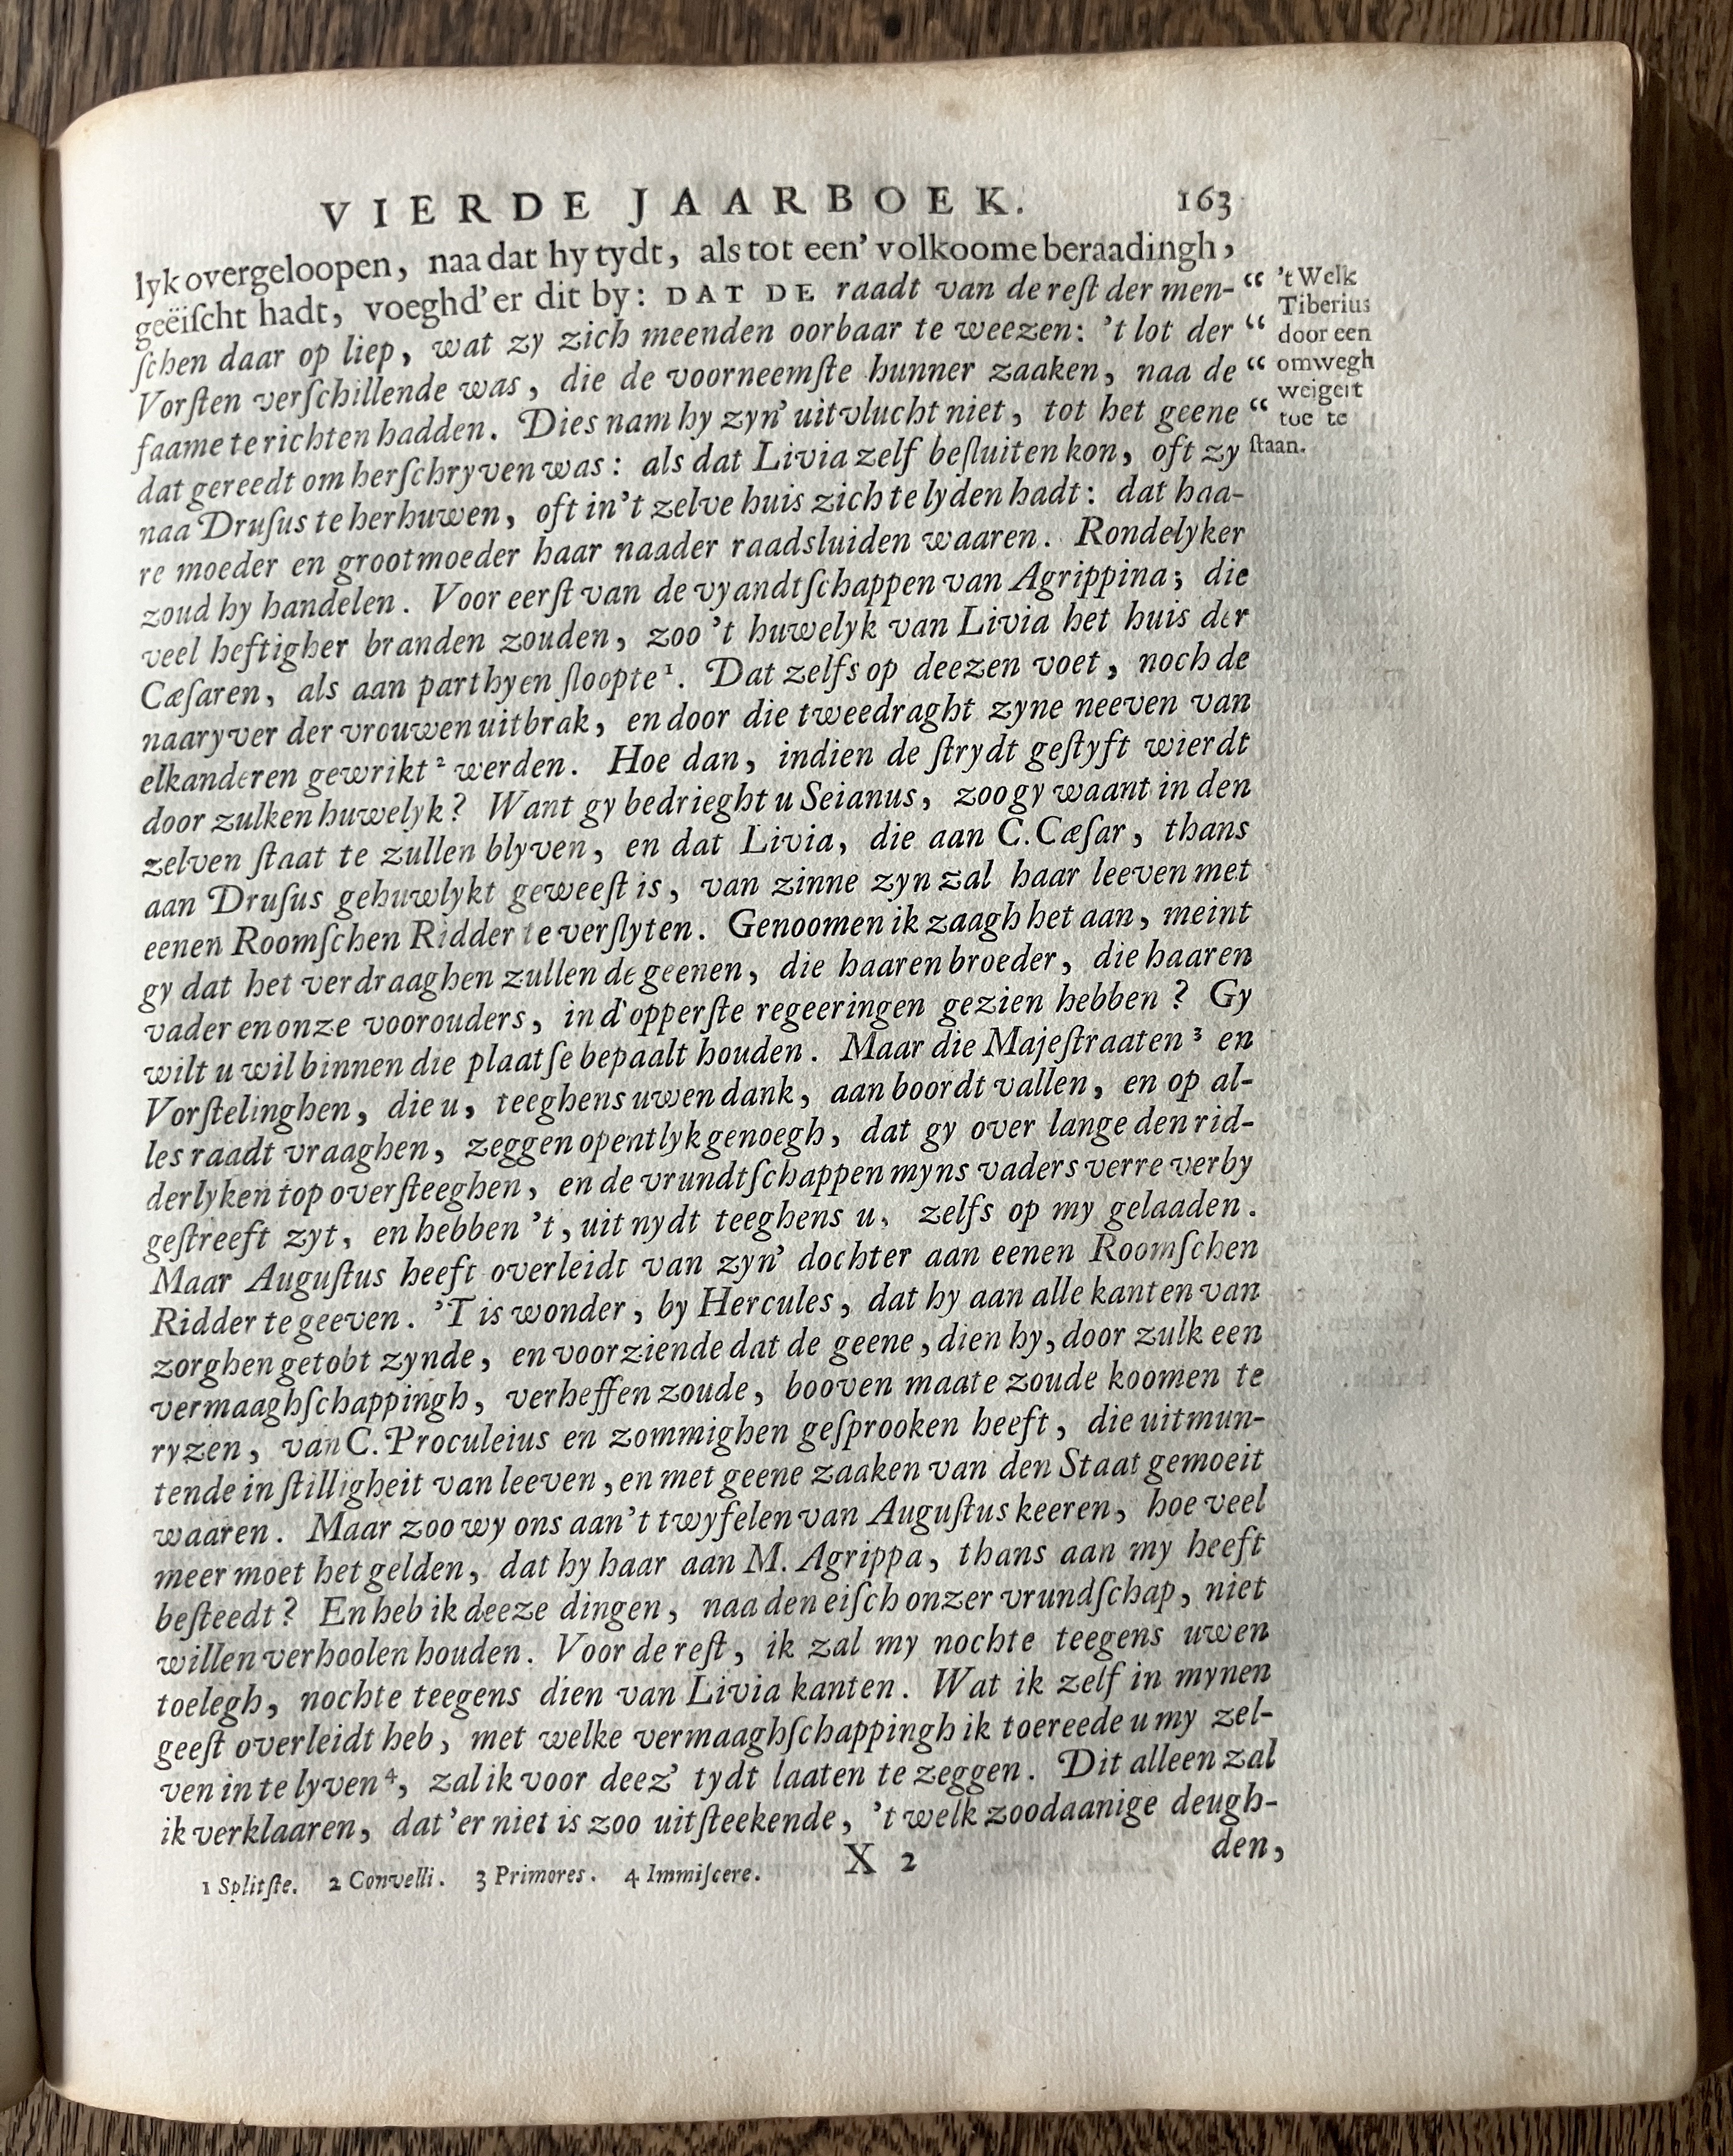 VIERDE JAARBOEK. 163
lyk overgeloopen, naa dat hy tydt, als tot een' volkoome beraadingh,
geëiſcht hadt, voeghd'er dit by: DAT DE raadt van de reſt der men- “
ſchen daar op liep, wat zy zich meenden oorbaar te weezen: 't lot der “
Vorſten verſchillende was, die de voorneemſte hunner zaaken, naa de “
faame te richten hadden. Dies nam hy zyn' uitvlucht niet, tot het geene “
dat gereedt om herſchryven was: als dat Livia zelf beſluiten kon, oft zy
naa Druſus te herhuwen, oft in 't zelve huis zich te lyden hadt: dat haa-
re moeder en grootmoeder haar naader raadsluiden waaren. Rondelyker
zoud hy handelen. Voor eerſt van de vyandtſchappen van Agrippina; die
veel heftigher branden zouden, zoo 't huwelyk van Livia het huis der
Cæſaren, als aan parthyen ſloopte¹. Dat zelfs op deezen voet, noch de
naaryver der vrouwen uitbrak, en door die tweedraght zyne neeven van
elkanderen gewrikt² werden. Hoe dan, indien de ſtrydt geſtyft wierdt
door zulken huwelyk? Want gy bedrieght u Seianus, zoo gy waant in den
zelven ſtaat te zullen blyven, en dat Livia, die aan C. Cæſar, thans
aan Druſus gehuwlykt geweeſt is, van zinne zyn zal haar leeven met
eenen Roomſchen Ridder te verſlyten. Genoomen ik zaagh het aan, meint
gy dat het verdraaghen zullen de geenen, die haaren broeder, die haaren
vader en onze voorouders, in d'opperſte regeeringen gezien hebben? Gy
wilt u wil binnen die plaatſe bepaalt houden. Maar die Majeſtraaten³ en
Vorſtelinghen, die u, teeghens uwen dank, aan boordt vallen, en op al-
les raadt vraaghen, zeggen opentlyk genoegh, dat gy over lange den rid-
derlyken top overſteeghen, en de vrundtſchappen myns vaders verre verby
geſtreeft zyt, en hebben 't, uit nydt teeghens u, zelfs op my gelaaden.
Maar Auguſtus heeft overleidt van zyn' dochter aan eenen Roomſchen
Ridder te geeven. 'T is wonder, by Hercules, dat hy aan alle kanten van
zorghen getobt zynde, en voorziende dat de geene, dien hy, door zulk een
vermaaghſchappingh, verheffen zoude, booven maate zoude koomen te
ryzen, van C. Proculeius en zommighen geſprooken heeft, die uitmun-
tende in ſtilligheit van leeven, en met geene zaaken van den Staat gemoeit
waaren. Maar zoo wy ons aan 't twyfelen van Auguſtus keeren, hoe veel
meer moet het gelden, dat hy haar aan M. Agrippa, thans aan my heeft
beſteedt? En heb ik deeze dingen, naa den eiſch onzer vrundſchap, niet
willen verhoolen houden. Voor de reſt, ik zal my nochte teegens uwen
toelegh, nochte teegens dien van Livia kanten. Wat ik zelf in mynen
geeſt overleidt heb, met welke vermaaghſchappingh ik toereede u my zel-
ven in te lyven⁴, zal ik voor deez' tydt laaten te zeggen. Dit alleen zal
ik verklaaren, dat 'er niet is zoo uitſteekende, 't welk zoodaanige deugh-
den,
X 2
1 Splitſte. 2 Convelli. 3 Primores. 4 Immiſcere.
't Welk
Tiberius
door een
omwegh
weigert
toe te
ſtaan.